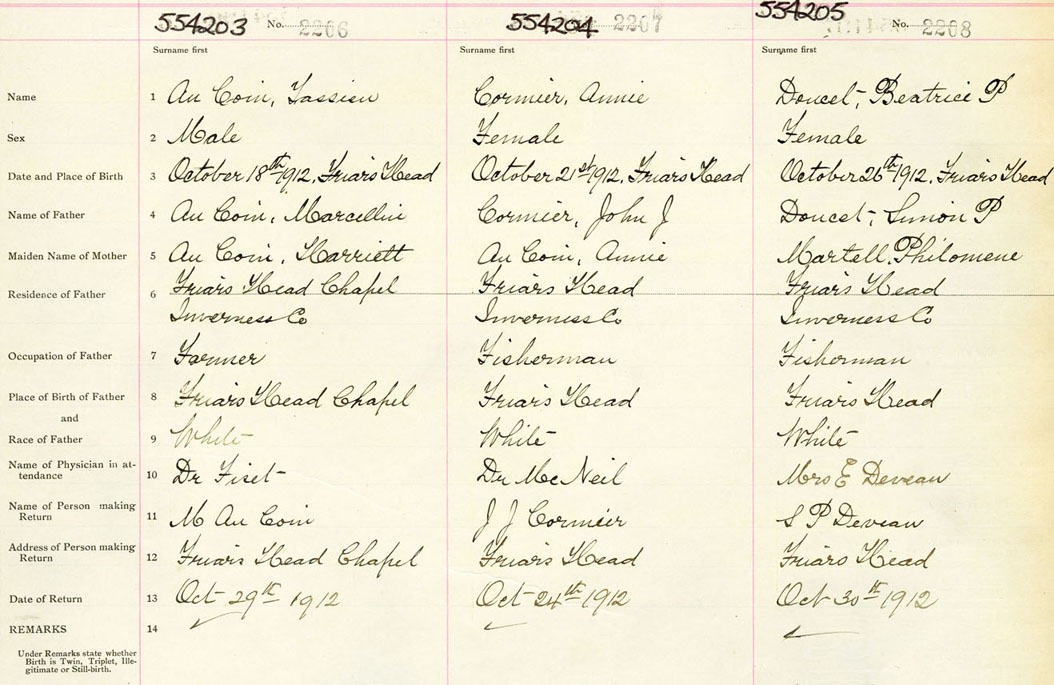 554203 No. 2206 554204 2207 554205 No. 2208
Surname first Surname first Surname first
Name 1 Au Coin, Tassien Cormier, Annie Doucet, Beatrice P
Sex 2 Male Female Female
Date and Place of Birth 3 October 18th 1912, Friars Head October 21st 1912, Friars Head October 26th 1912, Friars Head
Name of Father 4 Au Coin, Marcellin Cormier, John J Doucet, Simon P
Maiden Name of Mother 5 Au Coin, Harriett Au Coin, Annie Martell, Philomene
Residence of Father 6 Friars Head Chapel Friars Head Friars Head
Inverness Co Inverness Co Inverness Co
Occupation of Father 7 Farmer Fisherman Fisherman
Place of Birth of Father 8 Friars Head Chapel Friars Head Friars Head
and
Race of Father 9 White White White
Name of Physician in at-
tendance 10 Dr Fiset Dr McNeil Mrs E Deveau
Name of Person making
Return 11 M Au Coin J J Cormier S P Deveau
Address of Person making
Return 12 Friars Head Chapel Friars Head Friars Head
Date of Return 13 Oct 29th 1912 Oct 24th 1912 Oct 30th 1912
REMARKS 14
Under Remarks state whether
Birth is Twin, Triplet, Ille-
gitimate or Still-birth.